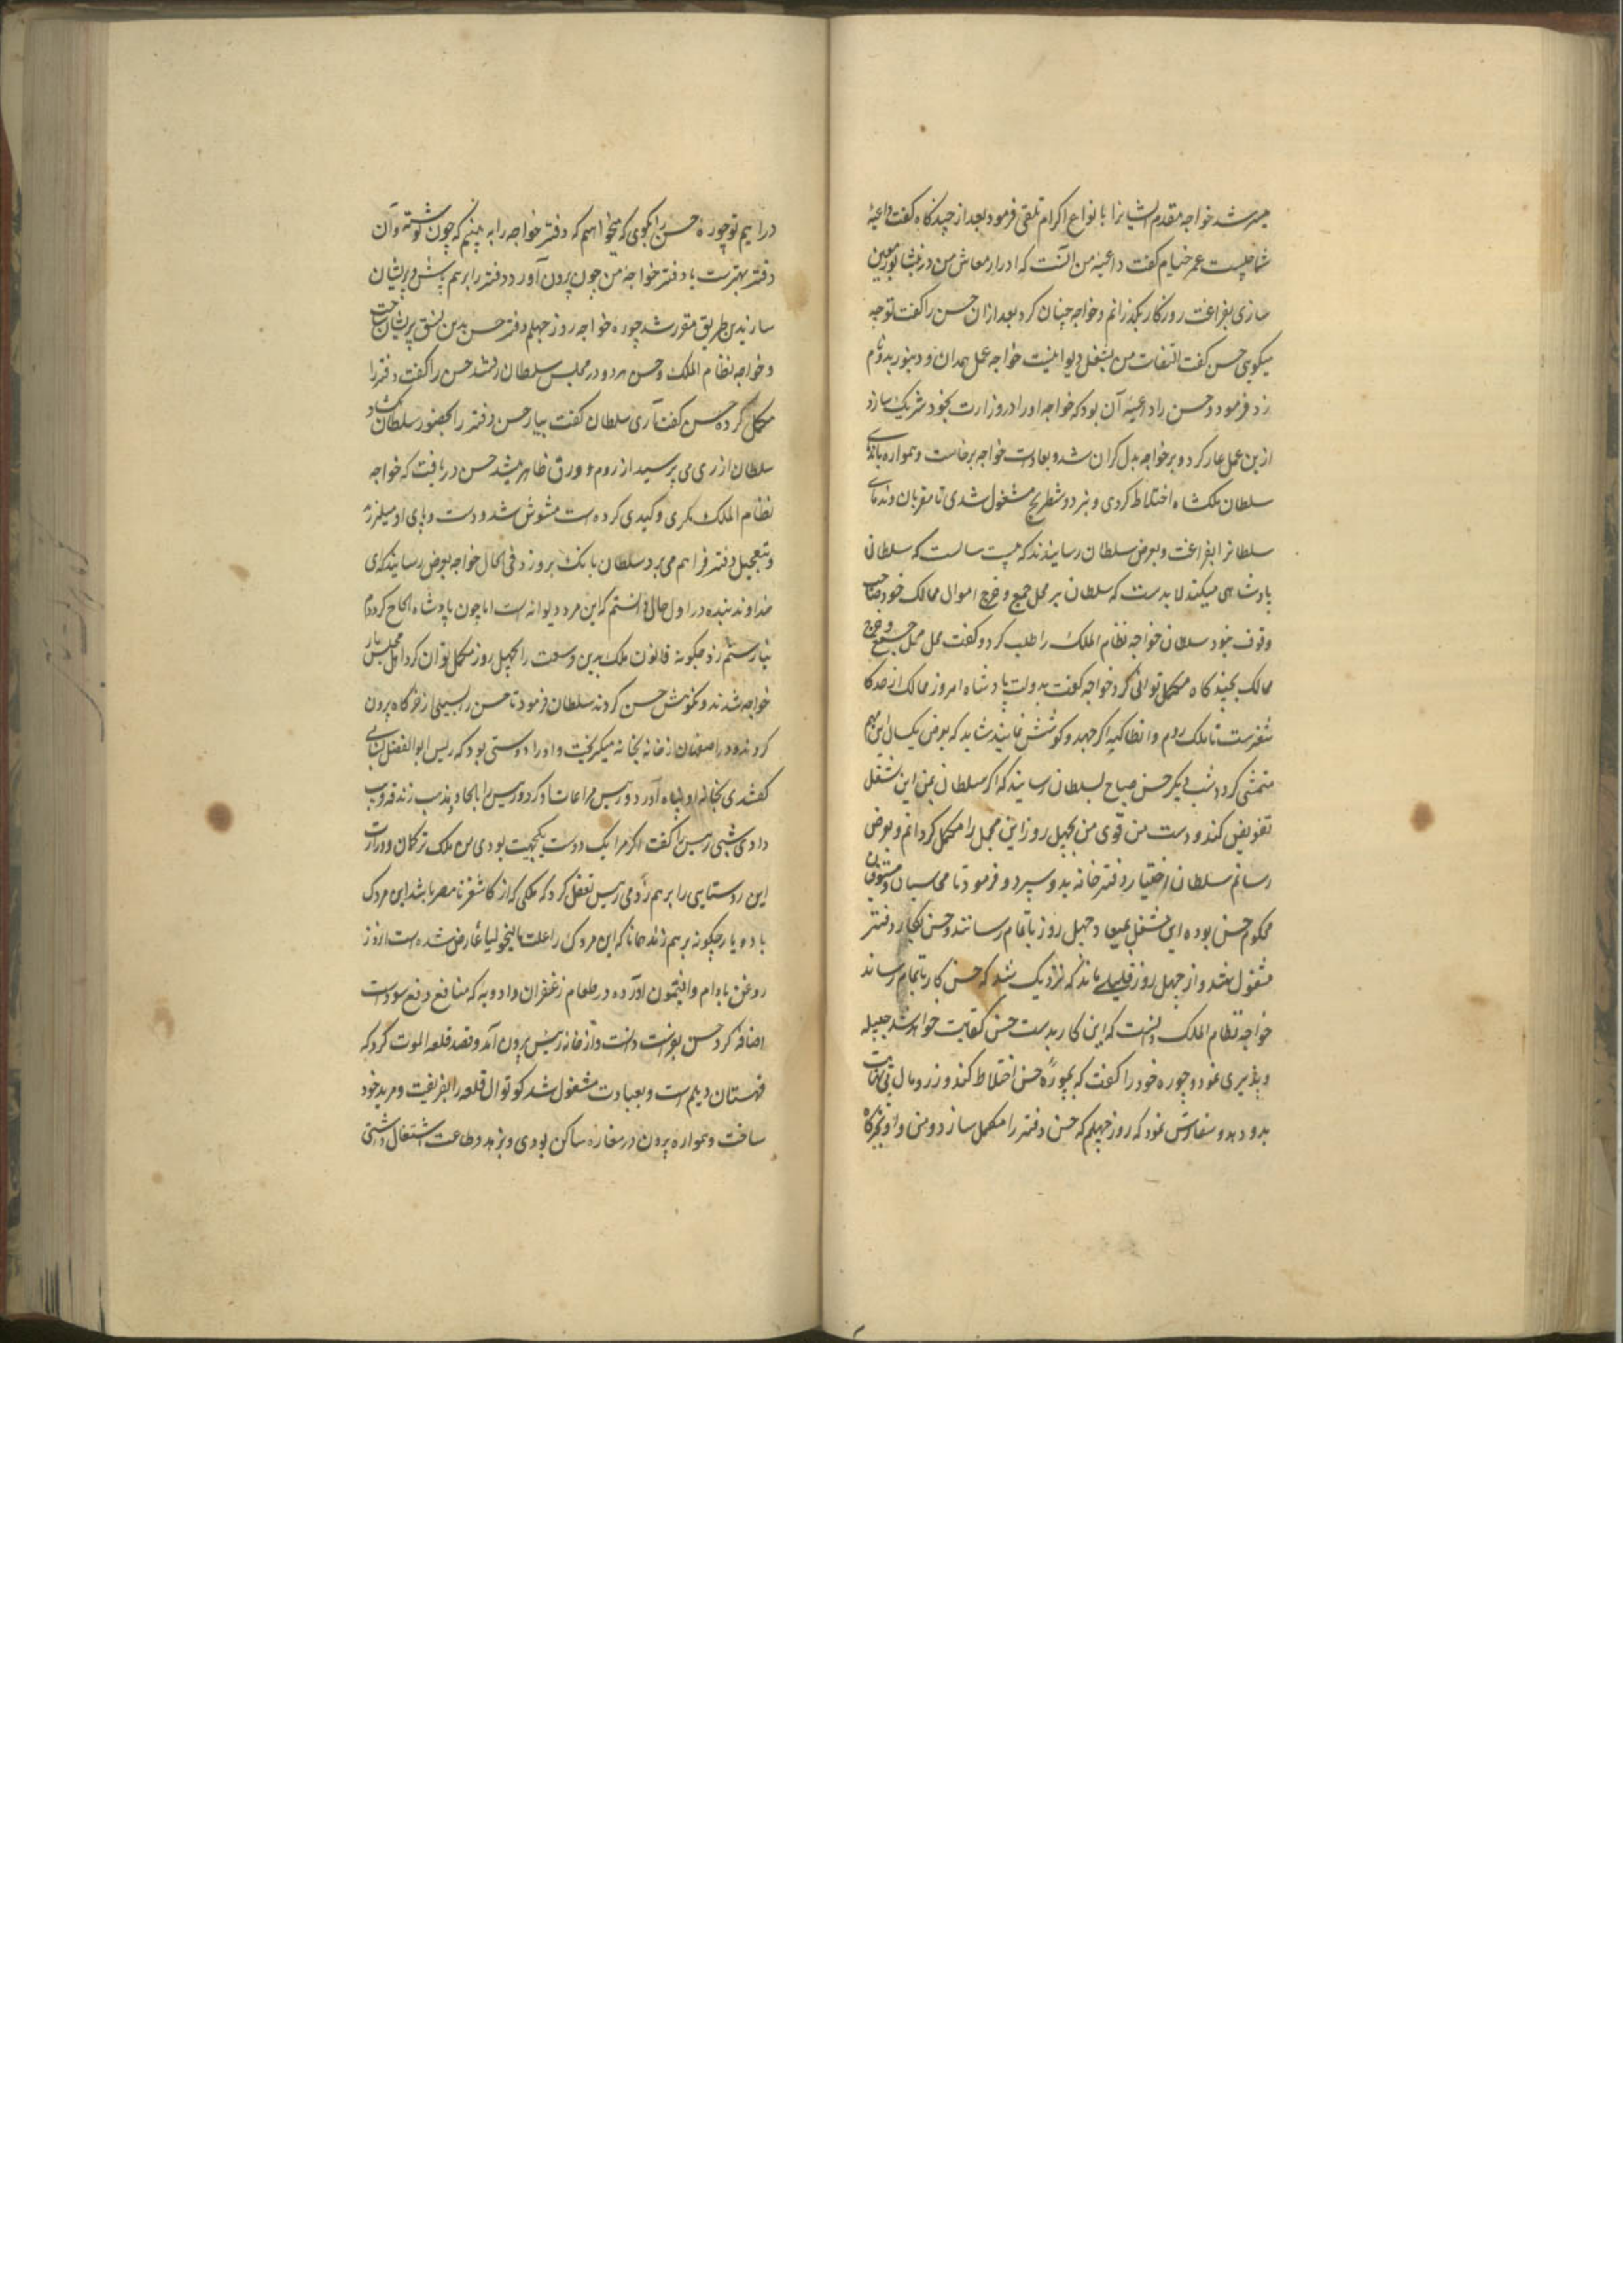 میسر شد خواجه مقدم ایشانرا بانواع اکرام تلقی فرمود بعد از چندکاه کفت داعیهٔ
شما چیست عمر خیام کفت داعیهٔ من آنست که ادرار معاش من در نیشابور معین
سازی بفراغت روزکار بکذرانم و خواجه چنان کرد بعد ازان حسن را کفت تو چه
میکویی حسن کفت التفات من بشغل دیوانیست خواجه عمل همدان و دینور بدو نام
زد فرمود و حسن را داعیهٔ آن بود که خواجه او را در وزارت بخود شریک سازد
ازین عمل عار کرد و بر خواجه بدل کران شد و بعادت خواجه برخاست و همواره با ندمای
سلطان ملکشاه اختلاط کردی و بنرد و شطرنج مشغول شدی تا مقربان و ندمای
سلطانرا بفراغت و بعرض سلطان رسانیدند که بیست سالست که سلطانی
پادشاهی میکند لابدست که سلطان بر محل جمع و خرج اموال ممالک خود صاحب
وقوف بود سلطان خواجه نظام الملک را طلب کرد و کفت محل جمع و خرج
ممالک بچند کاه مکمل توانی کرد خواجه کفت بدولت پادشاه امروز ممالک از حد کا
شغرست تا ملک روم و انطاکیه اکر جهد و کوشش نمایند شاید که بعرض یک سال این مهم
متمشی کردد شب دیکر حسن صباح بسلطان رسانید که اکر سلطان بمن این شغل
تفویض کند و دست من قوی من بچهل روز این مجمل را مکمل کردانم و بعرض
رسانم سلطان اختیار دفترخانه بدو سپرد و فرمود تا محاسبان و مستوفیان
محکوم حسن بوده این شغل بمیعاد چهل روز باتمام رسانند و حسن بکار دفتر
مشغول شد و از چهل روز قلیلی ماند که نزدیک شد که حسن کار باتمام رساند
خواجه نظام الملک دانست که این کار بدست حسن کفایت خواهد شد حیله
و پذیری نمود و چوره خود را کفت که بچورهٔ حسن اختلاط کند و زر و مال بی نهایت
بدو دهد و سفارش نمود که روز چهلم که حسن دفتر را مکمل سازد و من و او بخرکاه
در اییم تو چوره حسن را بکوی که میخواهم که دفتر خواجه را به بینم که چون نوشته و آن
دفتر بهترست یا دفتر خواجهٔ من چون بیرون آورد دفتر را برهم پیش و پریشان
سازند برین طریق مقرر شد چوره خواجه روز چهلم دفتر حسن بدین نسق پریشان ساخت
و خواجه نظام الملک و حسن هر دو در مجلس سلطان رفتند حسن را کفت دفتر را
مکمل کردهٔ حسن کفت آری سلطان کفت بیار حسن دفتر را بحضور سلطان بکشاد
سلطان از ری می پرسید از روم ورق ظاهر میشد حسن دریافت که خواجه
نظام الملک مکری و کیدی کرده است مشوش شد و دست و پای او میلرزید
و بتعجیل دفتر فراهم می برد سلطان بانک برو زد فی الحال خواجه بعرض رسانید که ای
خداوند بنده در اول حال دانستم که این مرد دیوانه است اما چون پادشاه الحاح کرد دم
نیارستم زد چکونه قانون ملک بدین وسعت را بچهل روز مکمل توان کرد اهل مجلس یار
خواجه شدند و نکوهش حسن کردند سلطان فرمود تا حسن را بسیلی از خرکاه بیرون
کردند و در اصفهان از خانه بخانه میکریخت و او را دوستی بود که رئیس ابوالفضل لبنانی
کفتندی بخانهٔ او پناه آورد و رئیس مراعات او کرد و رئیس را بالحاد و مذهب زندقه فریب
دادی شبی رئیس را کفت اکر مرا یک دوست یکجهت بودی من ملک ترکان و وزارت
این روستایی را برهم زدمی رئیس تعقل کرد که ملکی که از کاشغر تا مصر باشد این مردک
با دو یار چکونه برهم زند همانا که این مردک را علت مالیخولیا عارض شده است
روغن بادام و افیتمون آورده در طعام زعفران و ادویه که منافع دفع سوداست
اضافه کرد حسن بفراست دانست و از خانه رئیس بیرون آمد و قصد قلعه الموت کرد که
قهستان دیلم است و بعبادت مشغول شد کوتوال قلعه را بفریفت و مرید خود
ساخت و همواره بیرون در مغاره ساکن بودی و بزهد و طاعت اشتغال داشتی